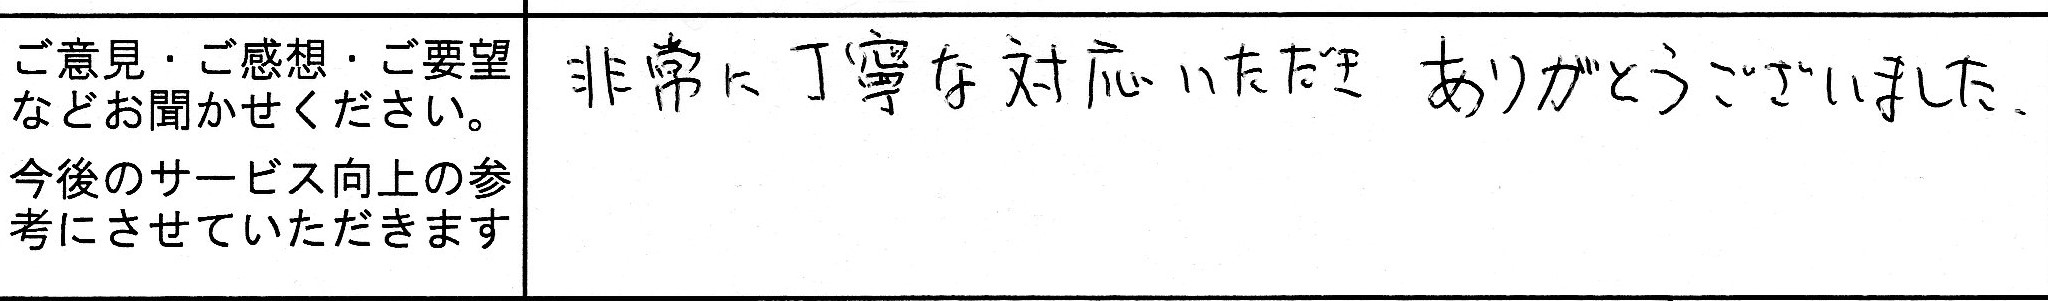 ご意見・ご感想・ご要望
などお聞かせください。
今後のサービス向上の参
考にさせていただきます
非常に丁寧な対応いただき ありがとうございました.